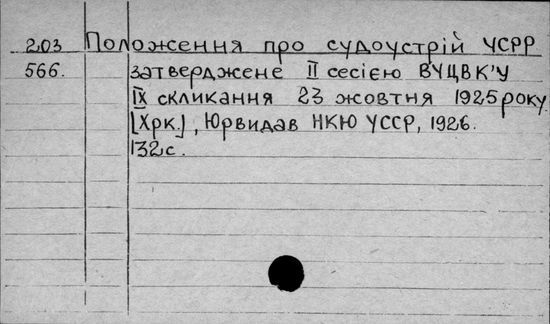 203 Положення про судоустрій УСРР
566. затверджене ІІ сесією ВУЦВК'У
ІХ скликання 23 жовтня 1925 року.
[Хрк.], Юрвидав НКЮ УССР, 1926.
132 с.